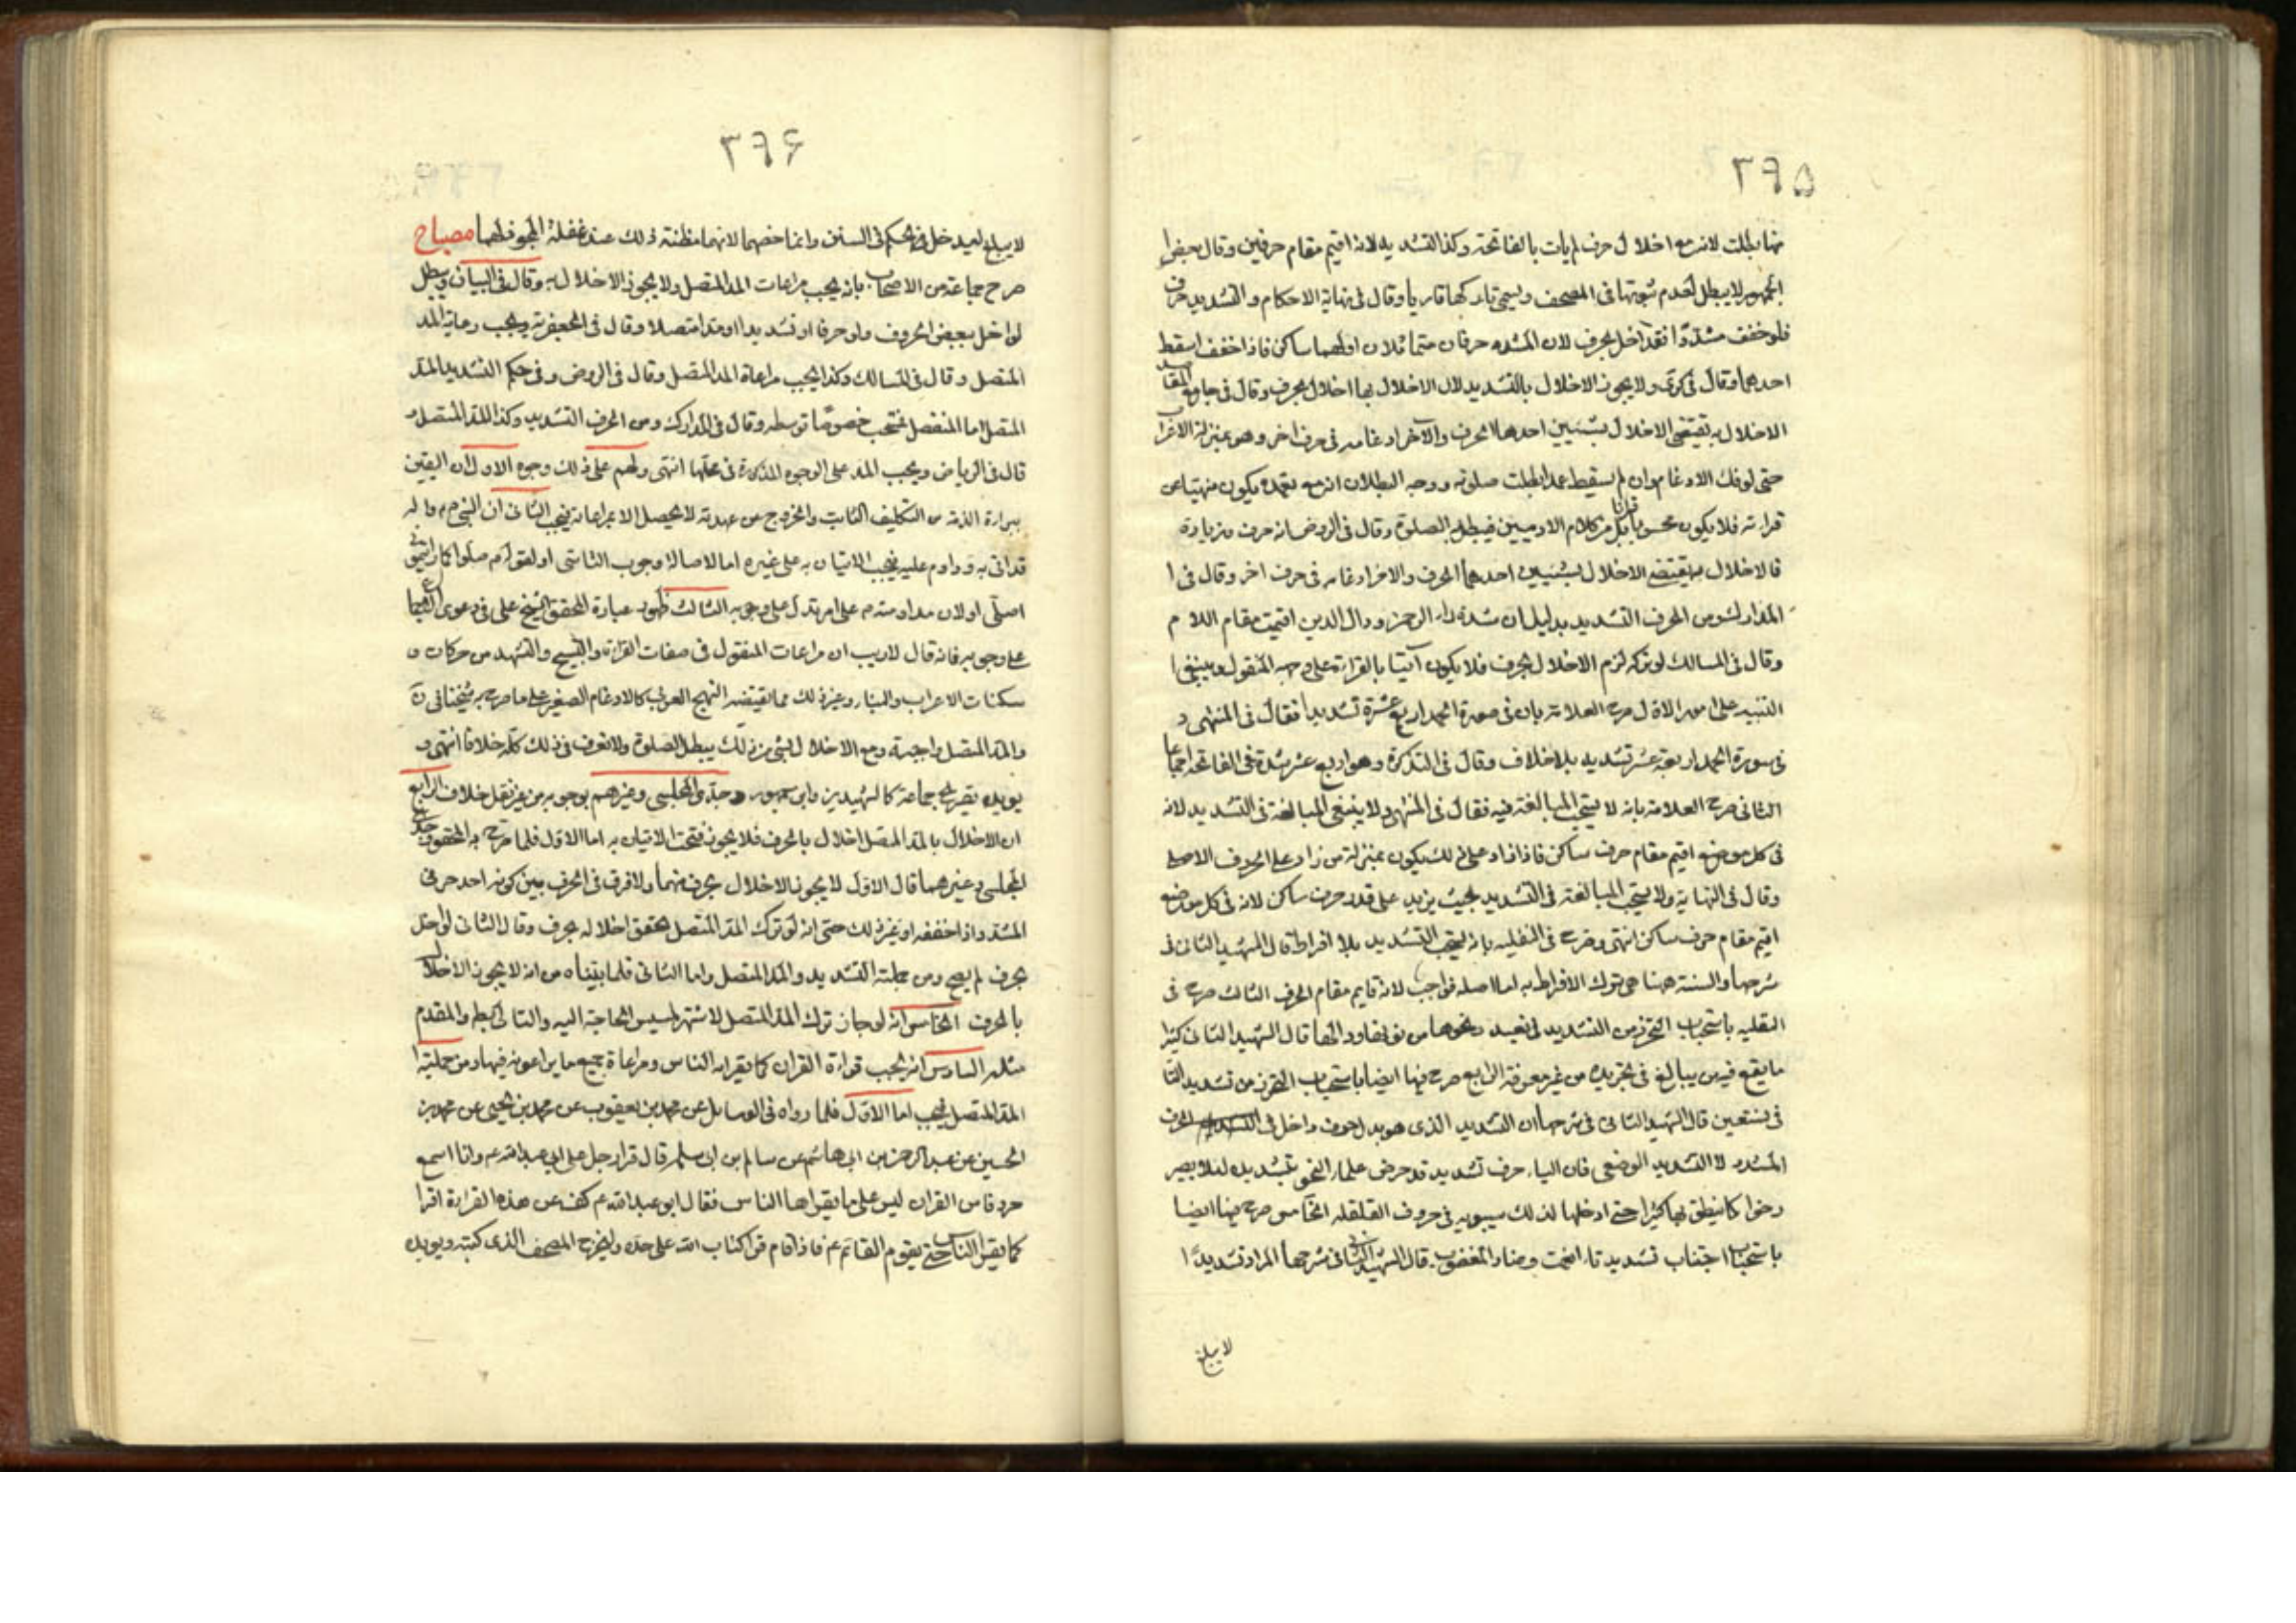 ٣٩٥
منها بطلت لانه مع اخلال حرف لم يات بالفاتحة وكذا التشديد لانه اقيم مقام حرفين وقال بعض
الجمهور لا يبطل لعدم ثبوتها فى المصحف ويسمى تاركها قاريا وقال فى نهاية الاحكام والتشديد حرف
فلو خفف مشددا فقد اخل بحرف لان المشدد حرفان متماثلان اولهما ساكن فاذا خفف اسقط
احدهما وقال فى كرى ولا يجوز الاخلال بالتشديد لان الاخلال بها اخلال بحرف وقال فى جامع المقاصد
الاخلال به يقتضى الاخلال بشيئين احدهما الحرف والآخر ادغامه فى حرف اخر وهو بمنزلة الاعراب
حتى لو فك الادغام وان لم يسقط عمدا بطلت صلوته ووجه البطلان انه مع تعمده يكون منهيا عن
قراءته فلا يكون محسوبا قرانا بل من كلام الادميين فيبطل الصلوة وقال فى الروض انه حرف وزيادة
فالاخلال به يقتضى الاخلال بشيئين احدهما الحرف والاخر ادغامه فى حرف اخر وقال فى
المدارك ومن الحرف التشديد بدليل ان شدة راء الرحمن ودال الدين اقيمت مقام اللام
وقال فى المسالك لو تركه لزم الاخلال بحرف فلا يكون آتيا بالقراءة على وجهه المنقول وينبغى
التنبيه على امور الاول صرح العلامة بان فى صورة الحمد اربع عشرة تشديدا فقال فى المنتهى و
فى سورة الحمد اربعة عشر تشديد بلا خلاف وقال فى التذكرة وهو اربع عشر شدة فى الفاتحة اجماعا
الثانى صرح العلامة بانه لا يستحب المبالغة فيه فقال فى المنتهى ولا ينبغى المبالغة فى التشديد لانه
فى كل موضع اقيم مقام حرف ساكن فاذا زاد على ذلك يكون بمنزلة من زاد على الحروف الاصلى
وقال فى النهاية ولا يستحب المبالغة فى التشديد بحيث يزيد على قدر حرف ساكن لانه فى كل موضع
اقيم مقام حرف ساكن انتهى وصرح فى النفلية بانه يستحب التشديد بلا افراط قال الشهيد الثانى فى
شرحها والسنة هنا هى ترك الافراط به اما اصله فواجب لانه قايم مقام الحرف الثالث صرح فى
النفلية باستحباب التحرز من التشديد فى نعبد ونحوها قال الشهيد الثانى كثيرا
ما يقع فيه من يبالغ فى تجريده من غير معرفة الرابع صرح فيها ايضا باستحباب التحرز من تشديد التا
فى نستعين قال الشهيد الثانى فى شرحها ان التشديد الذى هو بدل حرف داخل فى الحرف
المشدد لا التشديد الوضعى فان الياء حرف تشديد قد حرض علماء النحو بتشديده لئلا يصير
رخوا كما ينطق بها كثيرا حتى ادخلها لذلك سيبويه فى حروف القلقلة الخامس صرح فيها ايضا
باستحباب اجتناب تشديد تاء انعمت وضاد المغضوب قال الشهيد الثانى فى شرحها المراد تشديدا
لا يبلغ
٣٩۶
لا يبلغ ليدخل فى الحكم فى السنن وانما خصهما لانهما مظنة ذلك عند غفلة مصباح
صرح جماعة من الاصحاب بانه يجب مراعات المد المتصل ولا يجوز الاخلال به وقال فى البيان ويبطل
لو اخل ببعض الحروف ولو حرفا او تشديدا او مدا متصلا وقال فى الجعفرية ويجب رعاية المد
المتصل وقال فى المسالك وكذا يجب مراعاة المد المتصل وقال فى الروض وفى حكم التشديد المد
المتصل اما المنفصل فمستحب خصوصا توسطه وقال فى المدارك ومن الحرف التشديد وكذا المد المتصل و
قال فى الرياض ويجب المد على الوجوه المذكورة فى محلها انتهى ولهم على ذلك وجوه الاول ان اليقين
ببراءة الذمة من التكليف الثابت والخروج من عهدته لا يحصل الا بمراعاته فيجب الثانى ان النبى ص واله
قد اتى به وداوم عليه فيجب الاتيان به على غيره اما لاصالة وجوب التاسى او لقوله ص صلوا كما رايتمونى
اصلى اولان مداومته ص على امر تدل على وجوبه الثالث ظهور عبارة المحقق الشيخ على فى دعوى الاجماع
على وجوبه فانه قال لا ريب ان مراعات المنقول فى صفات القراءة والتسبيح والتشهد من حركات و
سكنات الاعراب والبناء وغير ذلك مما يقتضيه النهج العربى كالادغام الصغير على ما صرح به شيخنا فى ن
والمد المتصل واجبة ومع الاخلال بشى من ذلك يبطل الصلوة ولا نعرف فى ذلك كله خلافا انتهى و
يويده تصريح جماعة كالشهيدين وابن جمهور وجدى المجلسى وغيرهم بوجوبه من غير نقل خلاف الرابع
ان الاخلال بالمد المتصل اخلال بالحرف فلا يجوز فيجب الاتيان به اما الاول فلما صرح به المحقق وجدى
المجلسى وغيرهما قال الاول لا يجوز الاخلال بحرف منهما ولا فرق فى الحرف بين كونه احد حرفى
المشدد اذا خففه او غير ذلك حتى انه لو ترك المد المتصل تحقق اخلاله بحرف وقال الثانى لو اخل
بحرف لم يصح ومن جملته التشديد والمد المتصل واما الثانى فلما بيناه من انه لا يجوز الاخلال
بالحرف الخامس انه لو جاز ترك المد المتصل لاشتهر لمسيس الحاجة اليه والتالى باطل والمقدم
مثله السادس انه يجب قراءة القران كما يقراه الناس ومراعاة جميع ما يراعونه فيها ومن جملتها
المد المتصل فيجب اما الاول فلما رواه فى الوسايل عن محمد بن يعقوب عن محمد بن يحيى عن محمد بن
الحسين عن عبد الرحمن بن ابى هاشم عن سالم بن ابى سلمة قال قرا رجل على ابى عبد الله ع وانا اسمع
حروفا من القران ليس على ما يقراها الناس فقال ابو عبد الله ع كف عن هذه القراءة اقرا
كما يقرا الناس حتى يقوم القائم ع فاذا قام قرا كتاب الله على حده وليخرج المصحف الذى كتبه ويويده